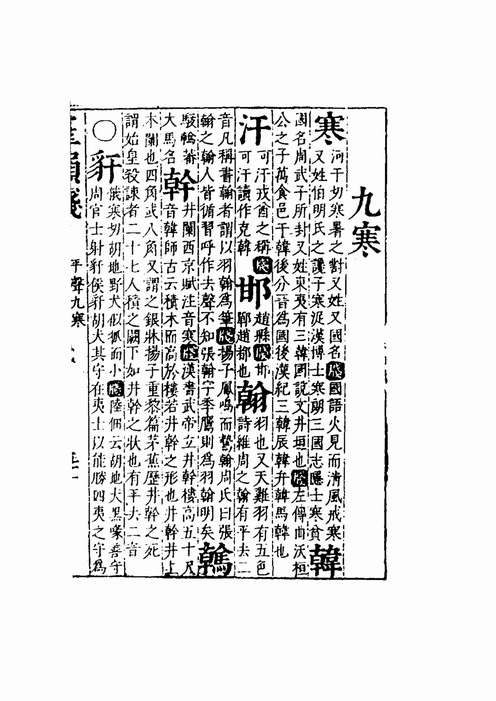 九寒
寒 河干切寒暑之對又姓又國名 箋 國語火見而清風戒寒
又姓伯明氏之讒子寒浞漢博士寒朗三國志隱士寒貧 韓
國名周武子所封又姓東夷有三韓國說文井垣也 箋 左傳曲沃桓
公之子萬食邑于韓後分晉為國後漢紀三韓辰韓弁韓馬韓也
汗 可汗戎酋之稱 箋
可汗讀作克韓 邯 趙縣 箋 邯
鄲趙都也 翰 羽也又天雞羽有五色
詩維周之翰有平去二
音凡稱書翰者謂以羽翰為筆 箋 揚子鳳鳴而蜚翰周氏曰張
翰之翰人皆循習呼作去聲不知張翰字季鷹則為羽翰明矣 鶾
大馬名 幹 井闌西京賦注音寒 箋 漢書武帝立井幹樓高五十丈
音韓師古云積木而高於樓若井幹之形也井幹井上
木闌也四角或八角又謂之銀牀揚子重黎篇茅蕉歷井幹之死
謂始皇殺諫者二十七人積之闕下如井幹之狀也有平去二音
○豻 俄寒切胡地野犬似狐而小 箋 陸佃云胡地犬黑喙善守
周官士射豻侯豻胡犬其守在夷士以能勝四夷之守為
平聲九寒